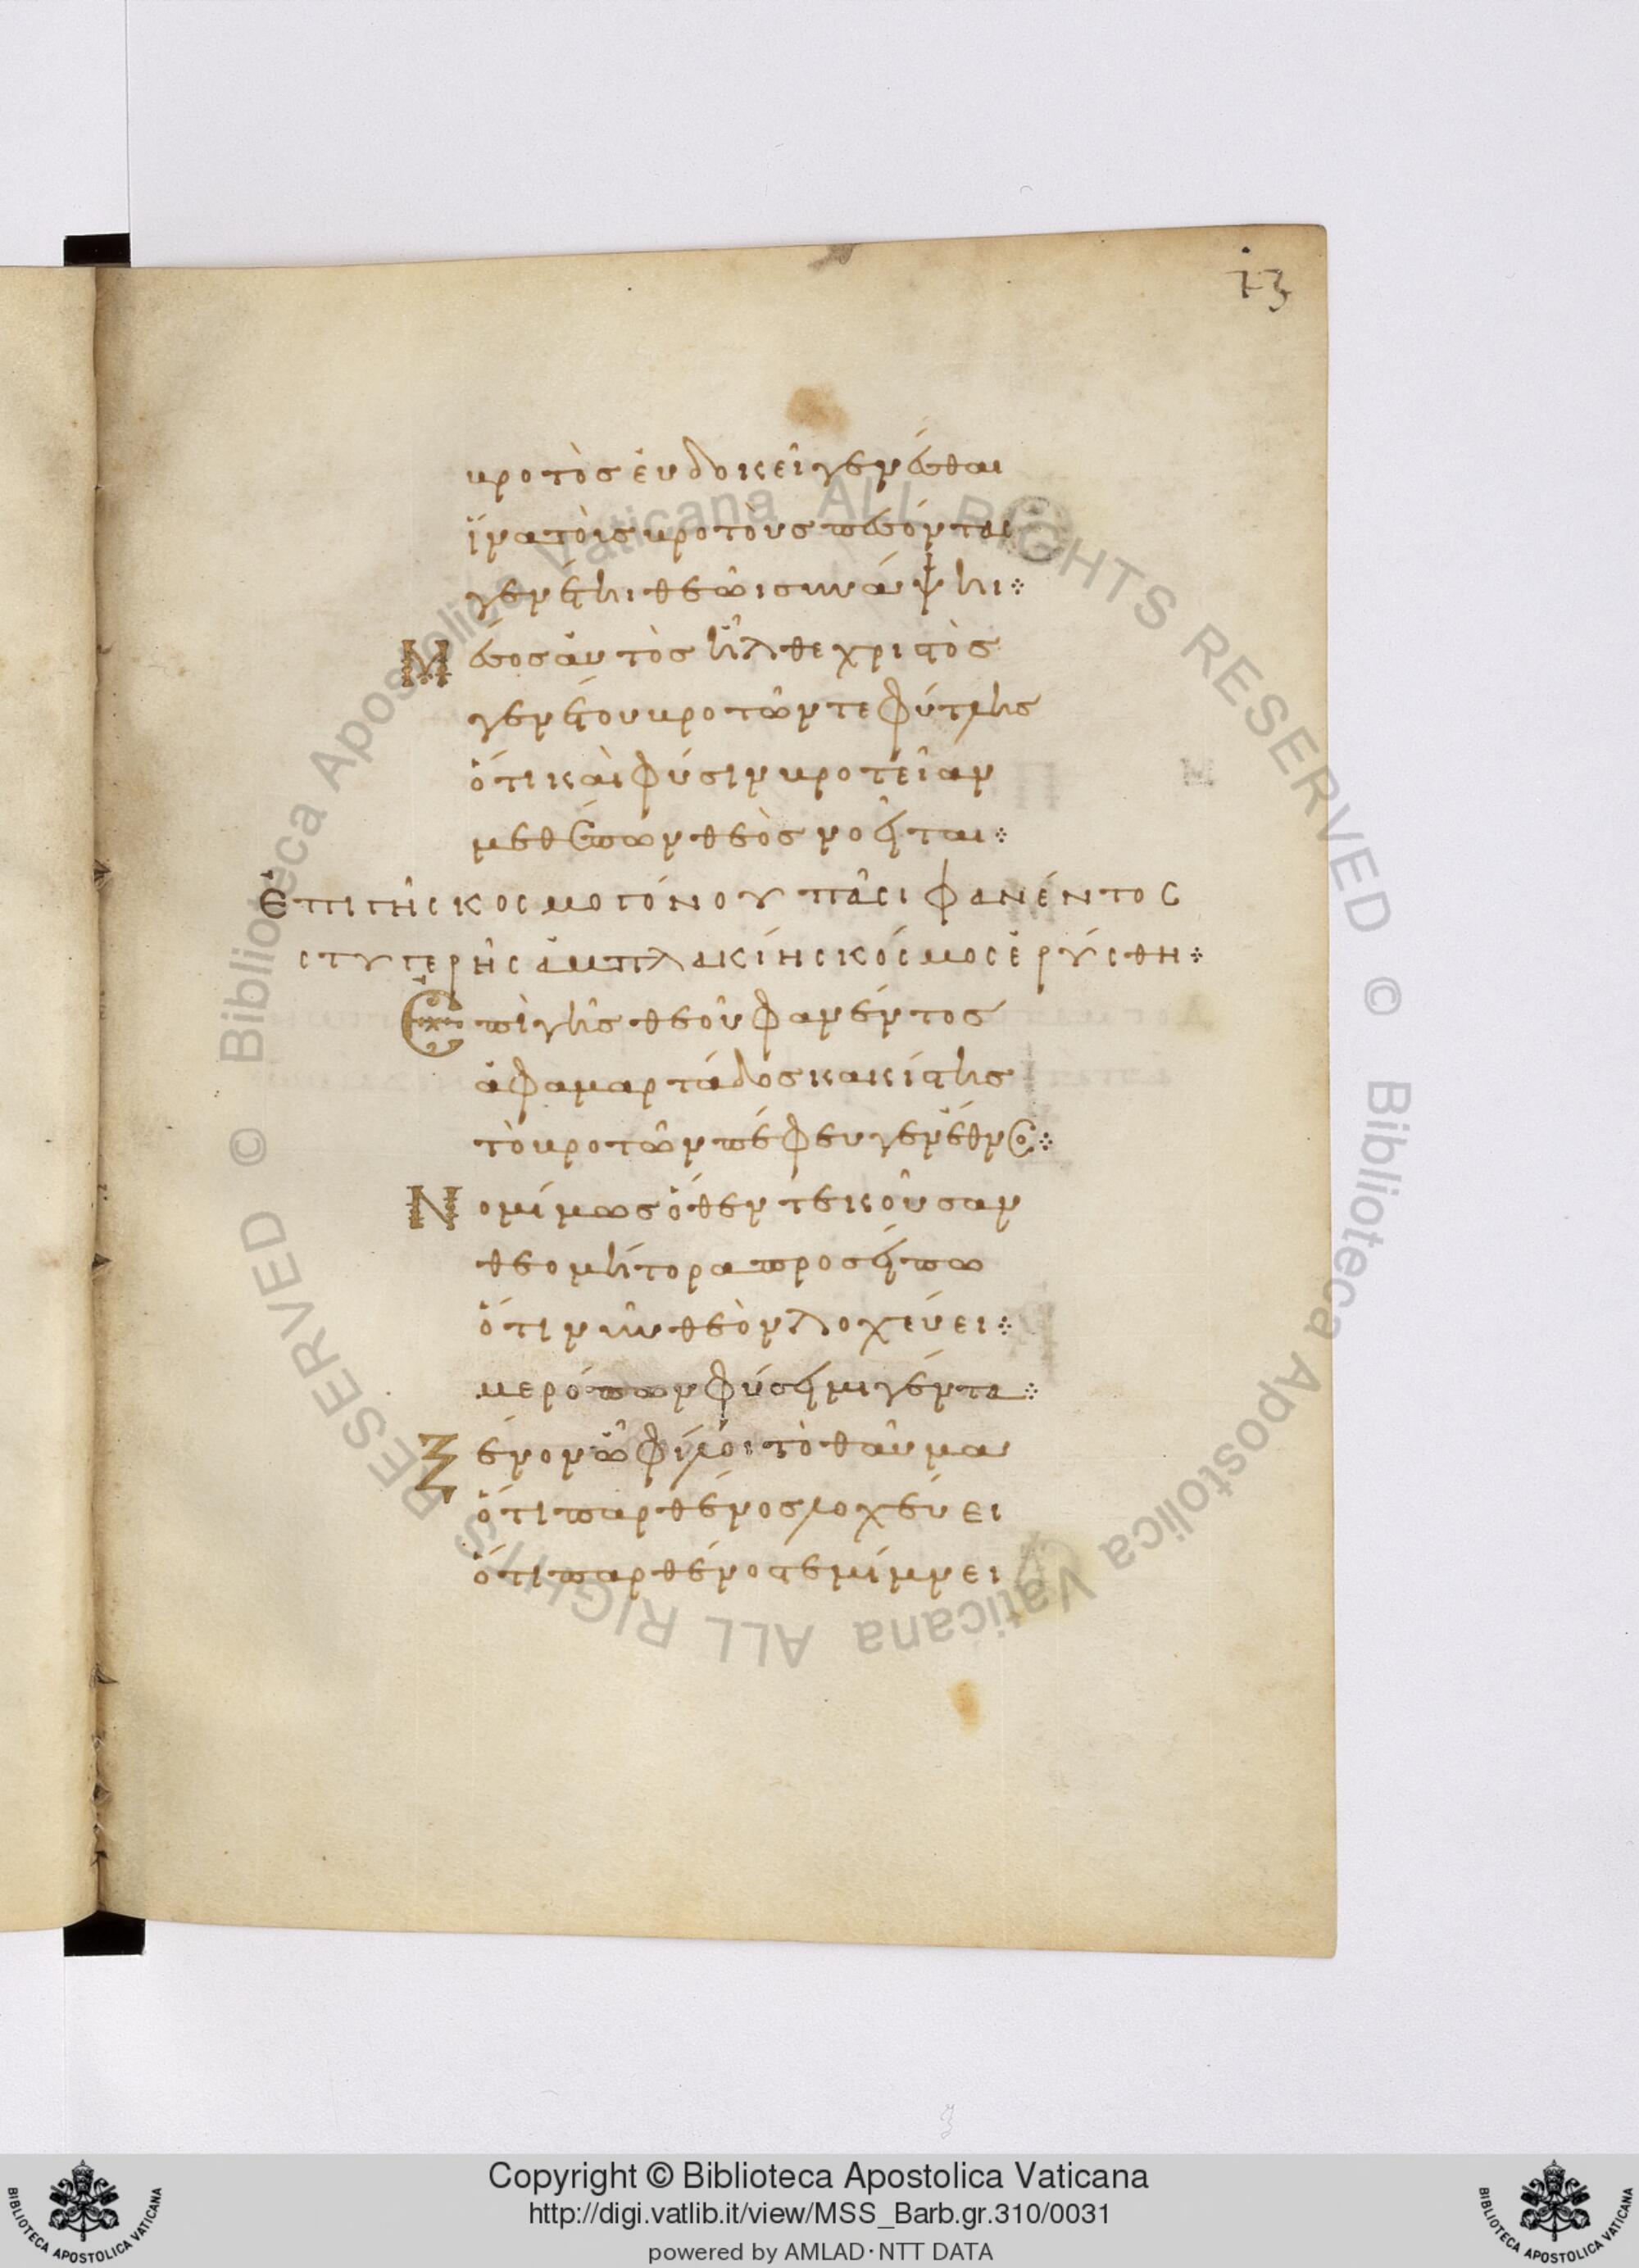 73
βροτὸς εὐδοκεῖ γενέσθαι
ἵνα τοὶς βροτοὺς πεσόντας
γενέτηι θεῶι συνάψηι·:
Μέσος αὐτὸς ἦλθε χριστὸς
γενέτου βροτῶν τε φύτλης
ὅτι καὶ φύσιν βροτείαν
μεθέπων θεὸς νοεῖται·:
Ἐπὶ τῆς κοσμοτόκου πᾶσι φανέντος
στυγερῆς ἀμπλακίης κόσμος ἐρύσθη·:
Ἐπὶ γῆς θεοῦ φανέντος
ἀφαμαρτάδος κακίστης
τὸ βροτῶν πέφευγεν ἔθνος·:
Νομίμως ὅθεν τεκοῦσαν
θεομήτορα προσείπω
ὅτι νῦν θεὸν λοχεύει·:
μερόπων φύσει μιγέντα·:
Ξένον ὦ φίλοι τὸ θαῦμα
ὅτι παρθένος λοχεύει
ὅτι παρθένος τε μίμνει
Copyright © Biblioteca Apostolica Vaticana
http://digi.vatlib.it/view/MSS_Barb.gr.310/0031
powered by AMLAD·NTT DATA
BIBLIOTECA APOSTOLICA VATICANA
BIBLIOTECA APOSTOLICA VATICANA
© Biblioteca Apostolica Vaticana ALL RIGHTS RESERVED
© Biblioteca Apostolica Vaticana ALL RIGHTS RESERVED